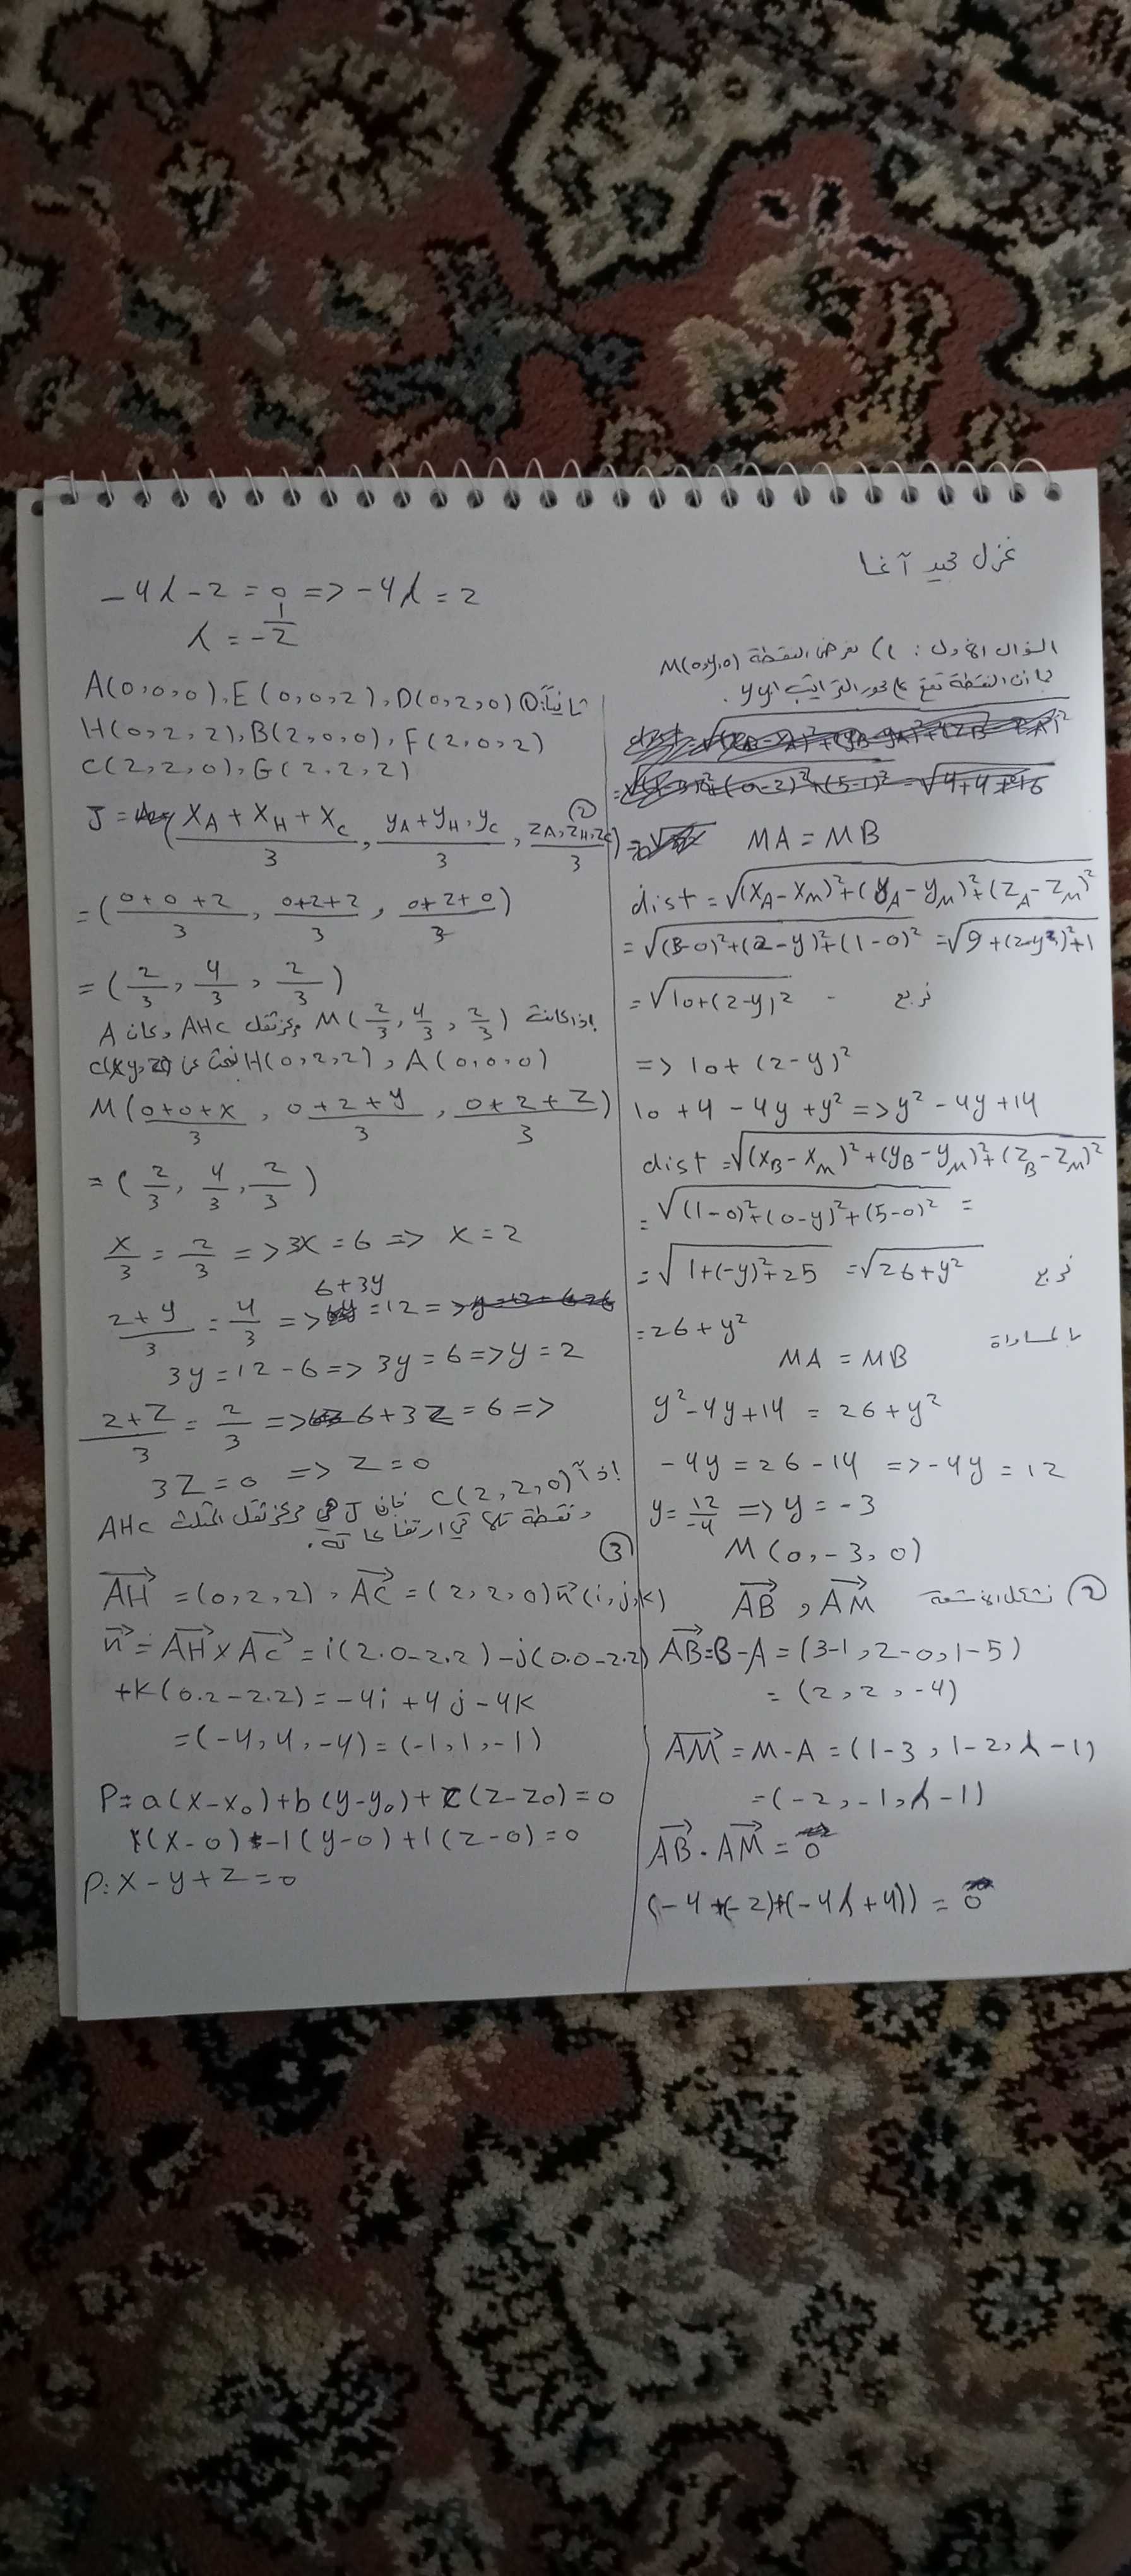 غزل محمد آغا
السؤال الأول : 1) نفرض النقطة M(0,y,0)
بما أن النقطة تقع على محور التراتيب yy'.
MA = MB
dist = √(x_A - x_M)² + (y_A - y_M)² + (z_A - z_M)²
= √(3-0)² + (2-y)² + (1-0)² = √9 + (2-y)² + 1
= √10 + (2-y)² - نربع
=> 10 + (2-y)²
10 + 4 - 4y + y² => y² - 4y + 14
dist = √(x_B - x_M)² + (y_B - y_M)² + (z_B - z_M)²
= √(1-0)² + (0-y)² + (5-0)² =
= √1 + (-y)² + 25 = √26 + y² نربع
= 26 + y²
بالمساواة
MA = MB
y² - 4y + 14 = 26 + y²
-4y = 26 - 14 => -4y = 12
y = 12/-4 => y = -3
M(0, -3, 0)
② نشكل الأشعة AM→ , AB→
AB→ = B - A = (3-1, 2-0, 1-5)
= (2, 2, -4)
AM→ = M - A = (1-3, 1-2, λ-1)
= (-2, -1, λ-1)
AB→ . AM→ = 0
(-4 + (-2) + (-4λ + 4)) = 0
-4λ - 2 = 0 => -4λ = 2
λ = -1/2
ثانياً: ① A(0,0,0), E(0,0,2), D(0,2,0)
H(0,2,2), B(2,0,0), F(2,0,2)
C(2,2,0), G(2,2,2)
②
J = (x_A + x_H + x_C / 3, y_A + y_H, y_C / 3, z_A, z_H, z_C / 3)
= (0+0+2 / 3, 0+2+2 / 3, 0+2+0 / 3)
= (2/3, 4/3, 2/3)
إذا كانت M(2/3, 4/3, 2/3) مركز ثقل AHC وكان A
A(0,0,0) , H(0,2,2) نبحث عن C(x,y,z)
M(0+0+x / 3, 0+2+y / 3, 0+2+z / 3)
= (2/3, 4/3, 2/3)
x/3 = 2/3 => 3x = 6 => x = 2
2+y / 3 = 4/3 => 6+3y = 12 =>
3y = 12 - 6 => 3y = 6 => y = 2
2+z / 3 = 2/3 => 6 + 3z = 6 =>
3z = 0 => z = 0
إذاً C(2,2,0) فإن J هي مركز ثقل المثلث AHC
ونقطة تلاقي ارتفاعاته.
③
AH→ = (0,2,2), AC→ = (2,2,0) n→(i,j,k)
n→ = AH→ × AC→ = i(2.0-2.2) - j(0.0-2.2)
+k(0.2-2.2) = -4i + 4j - 4k
= (-4, 4, -4) = (-1, 1, -1)
P = a(x-x₀) + b(y-y₀) + c(z-z₀) = 0
1(x-0) + -1(y-0) + 1(z-0) = 0
P: x - y + z = 0